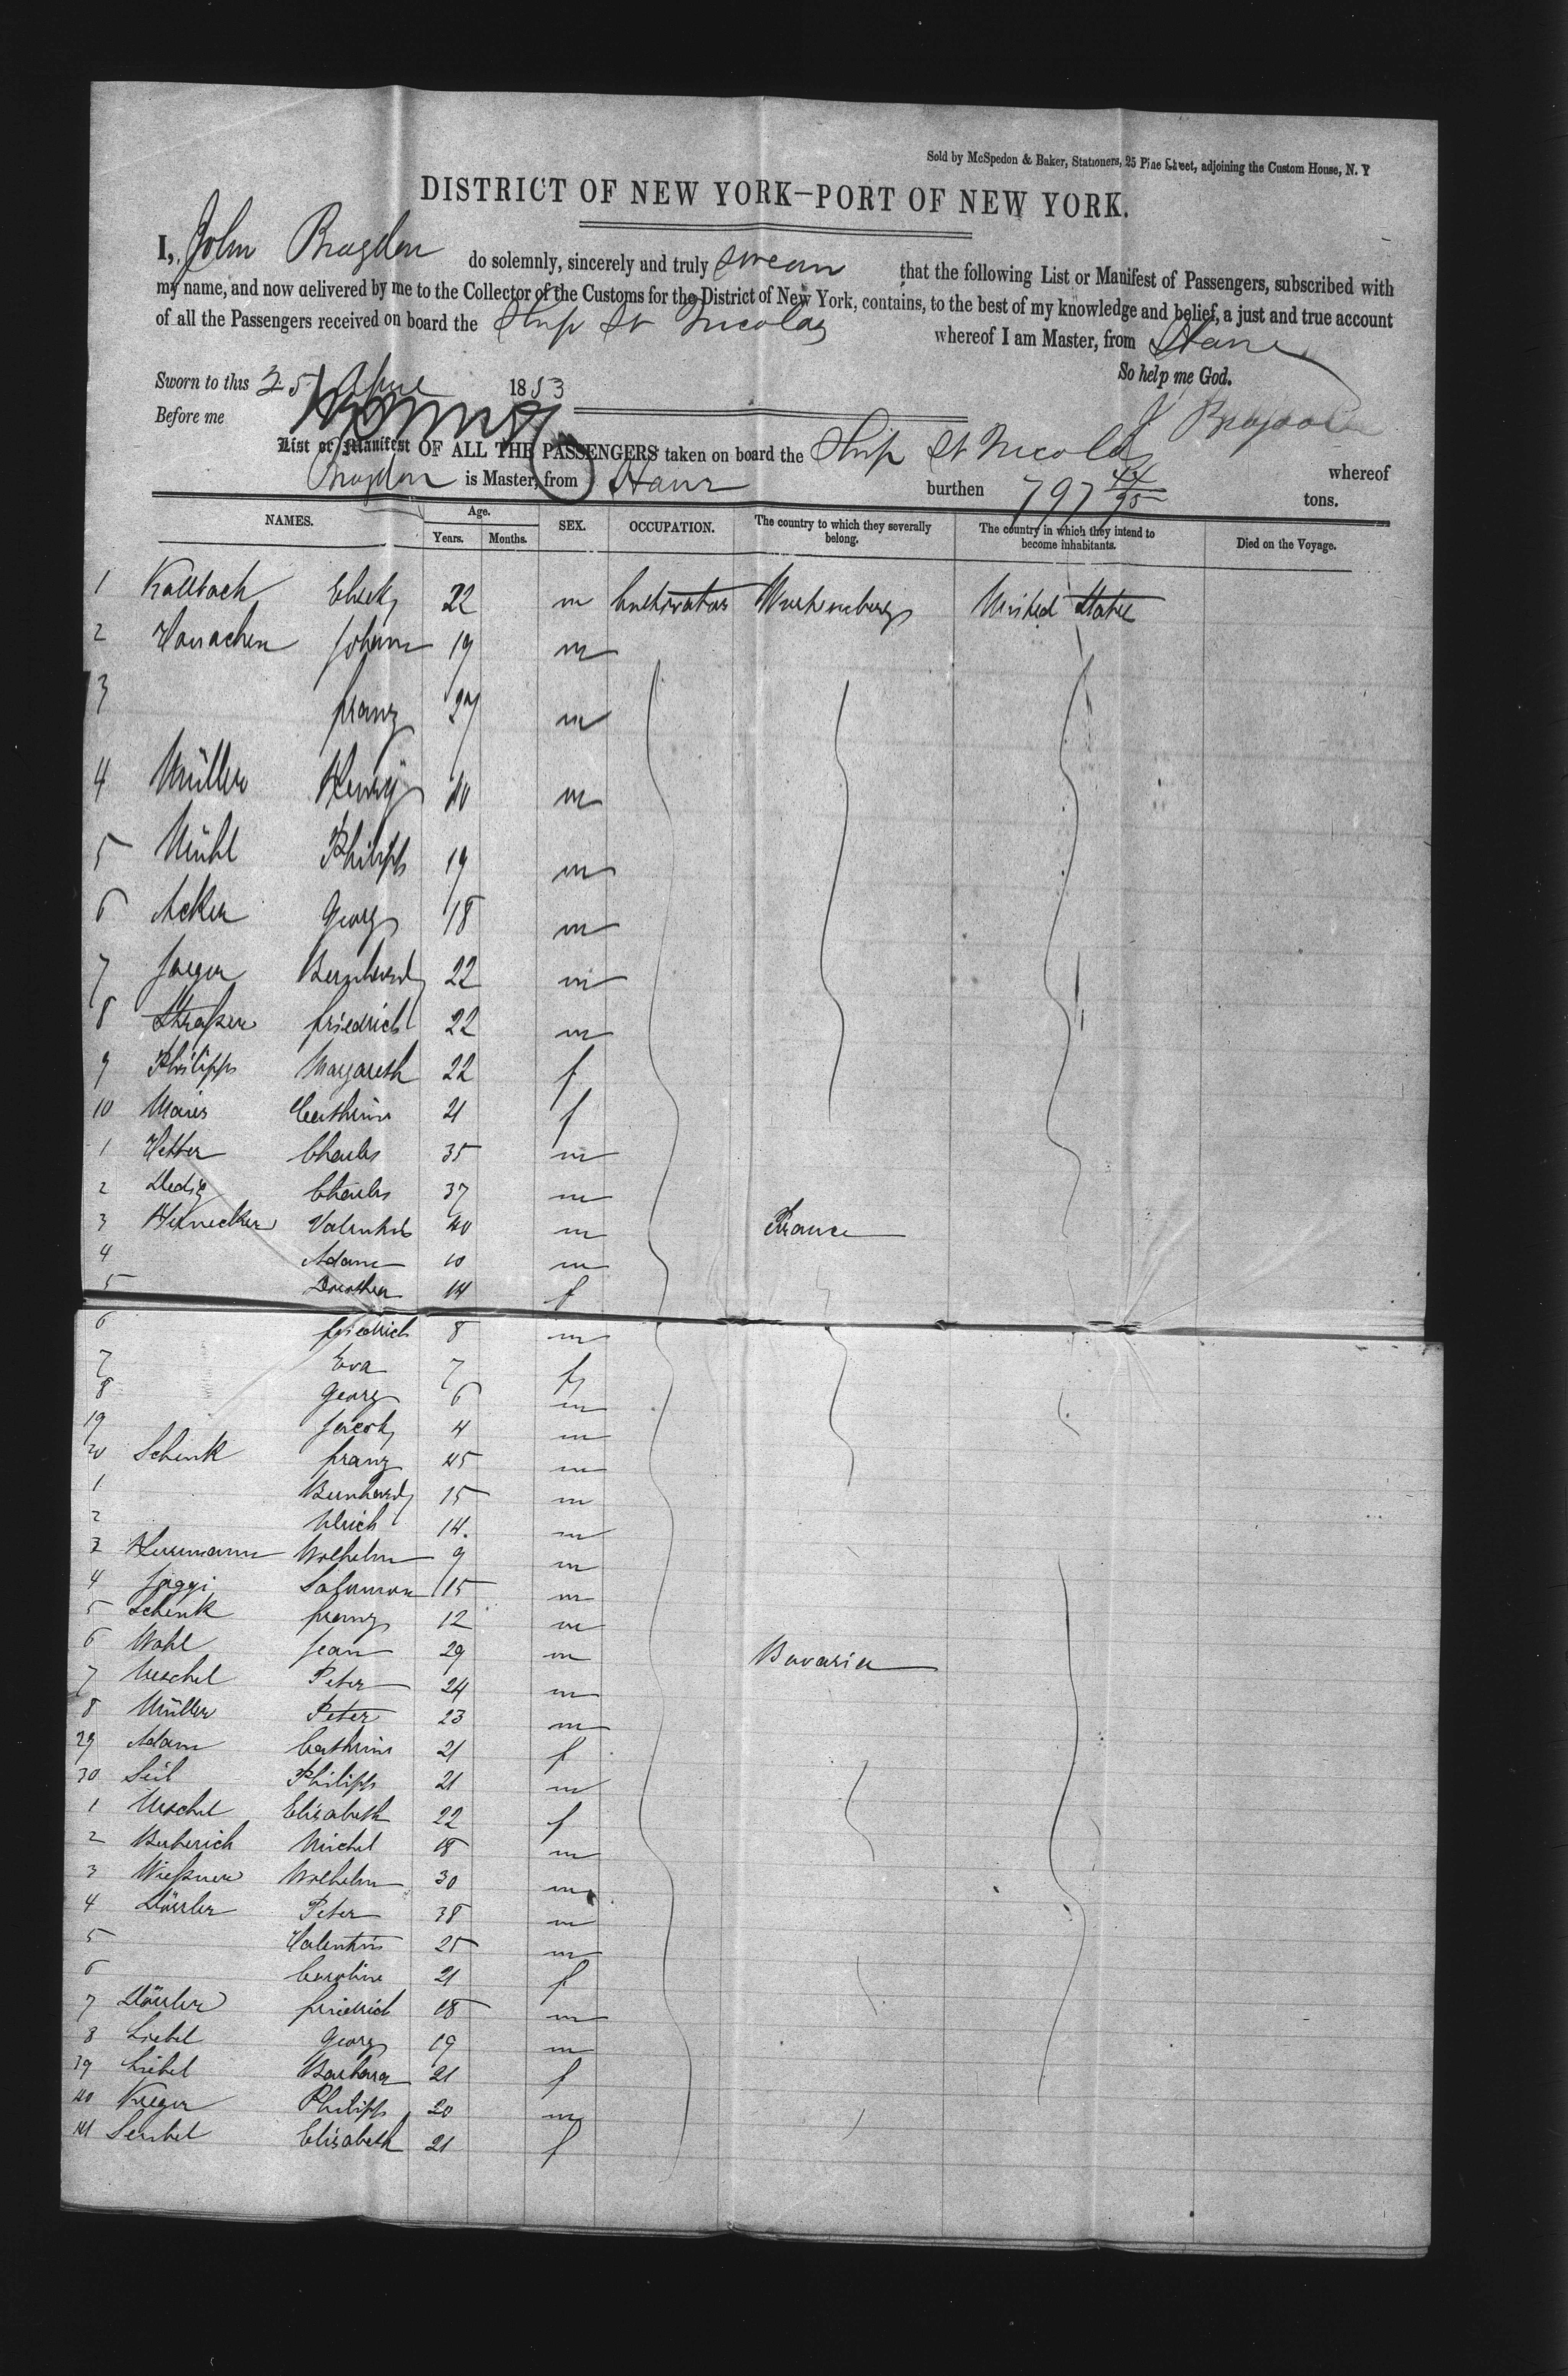 Sold by McSpedon & Baker, Stationers, 25 Pine Street, adjoining the Custom House, N. Y
DISTRICT OF NEW YORK—PORT OF NEW YORK.
I, John Bragdon do solemnly, sincerely and truly swear that the following List or Manifest of Passengers, subscribed with
my name, and now delivered by me to the Collector of the Customs for the District of New York, contains, to the best of my knowledge and belief, a just and true account
of all the Passengers received on board the Ship St Nicolas whereof I am Master, from Havre
So help me God.
Sworn to this 25 April 1853
Before me J Bragdon
List or Manifest OF ALL THE PASSENGERS taken on board the Ship St Nicolas whereof
Bragdon is Master, from Havre burthen 797 44/95 tons.
NAMES. Age. Years. Months. SEX. OCCUPATION. The country to which they severally belong. The country in which they intend to become inhabitants. Died on the Voyage.
1 Kallbach 22 m Cultivator Wurtemberg United States
2 Johann 19 m
3 franz 27 m
4 Müller Henry 40 m
5 Mühl Philipp 19 m
6 Acker Georg 18 m
7 Jaeger Bernhard 22 m
8 Straßer friedrich 22 m
9 Philipps Margareth 22 f
10 Maier Cathrine 21 f
1 Vetter Charles 35 m
2 Charles 37 m
3 Valentin 40 m France
4 Adam 10 m
5 Dorothea 14 f
6 friedrich 8 m
7 Eva 7 f
8 Georg 6 m
19 Jacob 4 m
20 Schenk franz 45 m
1 Bernhard 15 m
2 Ulrich 14. m
3 Herrmann Wilhelm 9 m
4 Jaggi Salomon 15 m
5 Schenk franz 12 m
6 Wahl Jean 29 m Bavaria
7 Peter 24 m
8 Müller Peter 23 m
29 Adam Cathrine 21 f
30 Seil Philipp 21 m
1 Elisabeth 22 f
2 Berberich Michel 18 m
3 Wießner Wilhelm 30 m
4 Dörrler Peter 38 m
5 Valentin 25 m
6 Caroline 21 f
7 Dörrler friedrich 18 m
8 Liebel Georg 19 m
39 Liebel Barbara 21 f
40 Krieger Philipp 20 m
41 Elisabeth 21 f